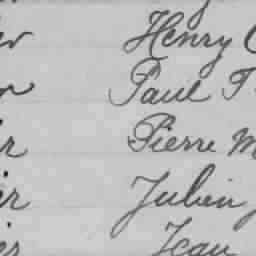 er Henry C
er Paul T
er Pierre M
er Julien J
er Jean